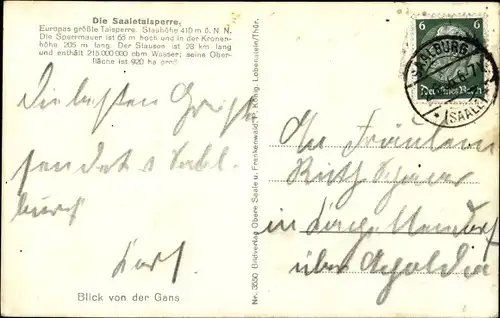 Die Saaletalsperre.
Europas größte Talsperre. Stauhöhe 410 m ü. N N.
Die Sperrmauer ist 65 m hoch und in der Kronen-
höhe 205 m lang. Der Stausee ist 28 km lang
und enthält 215 000 000 cbm Wasser; seine Ober-
fläche ist 920 ha groß.
6
SAALBURG
(SAALE)
Deutsches Reich
Die besten Grüße
sendet
burg
Karl
An Fräulein
Ruth
in
über Apolda
Blick von der Gans
Nr. 3550 Bildverlag Obere Saale u. Frankenwald, P. König, Lobenstein/Thür.